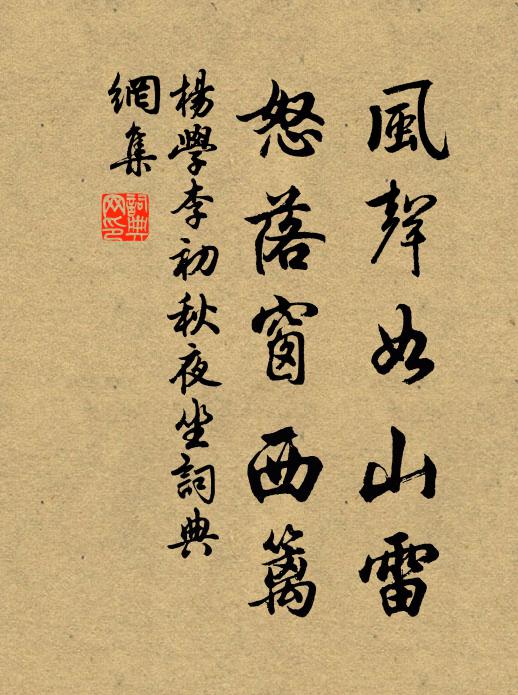 風聲如山雷
怒落窗西籬
楊學李初秋夜坐詞典
網集
詞典網印